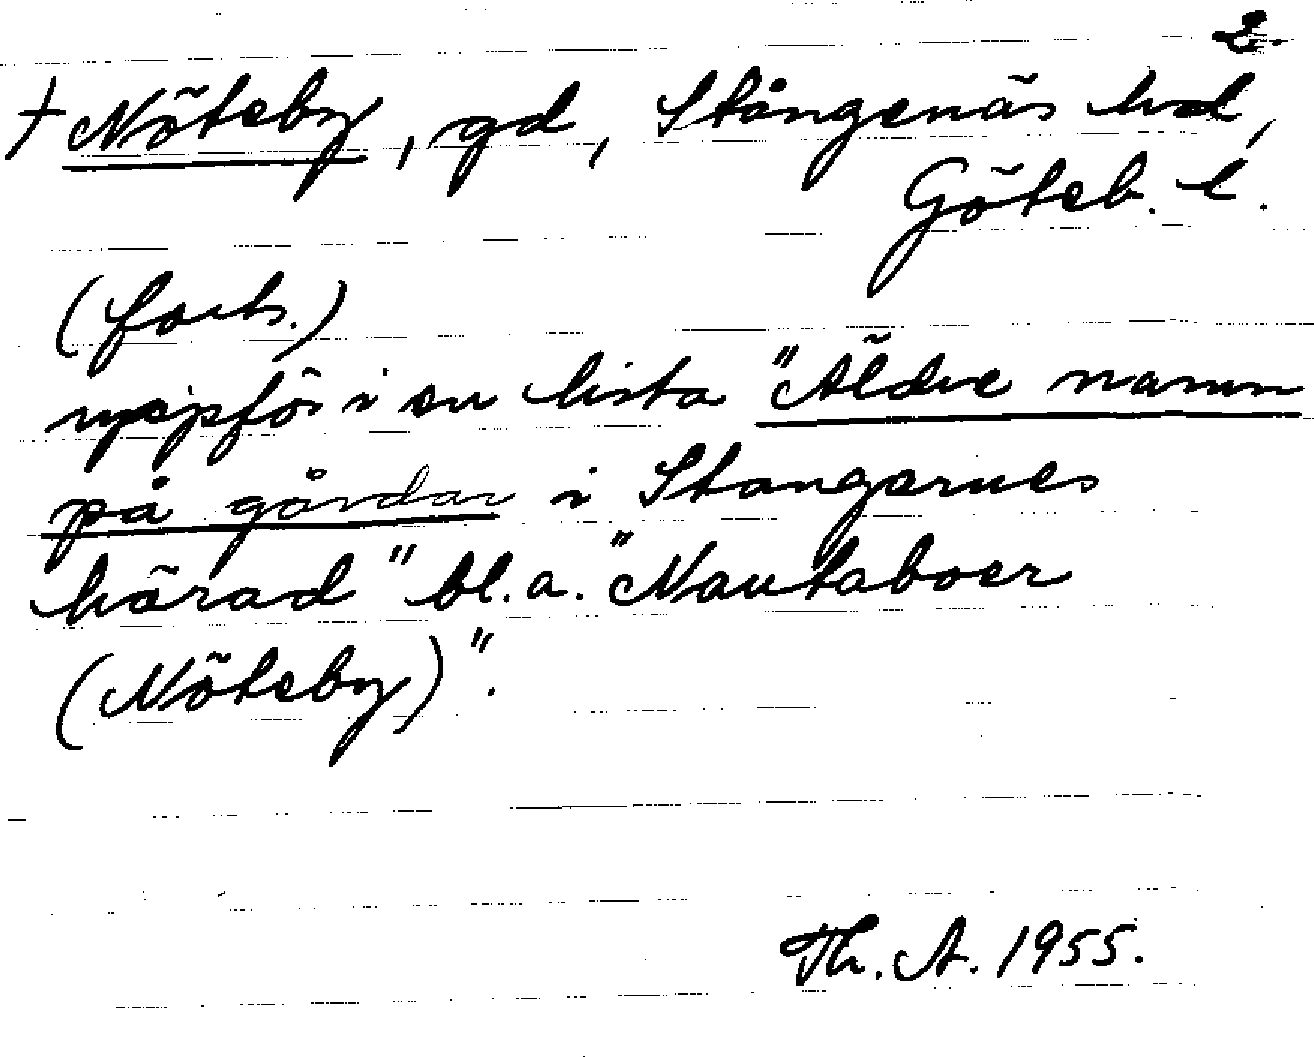 2.
† Nöteby, gd, Stångenäs hd,
Göteb. l.
(forts.)
uppför i en lista "Äldre namn
på gårdar i Stangernes
härad" bl.a. "Nautaboer
(Nöteby)".
Th. A. 1955.